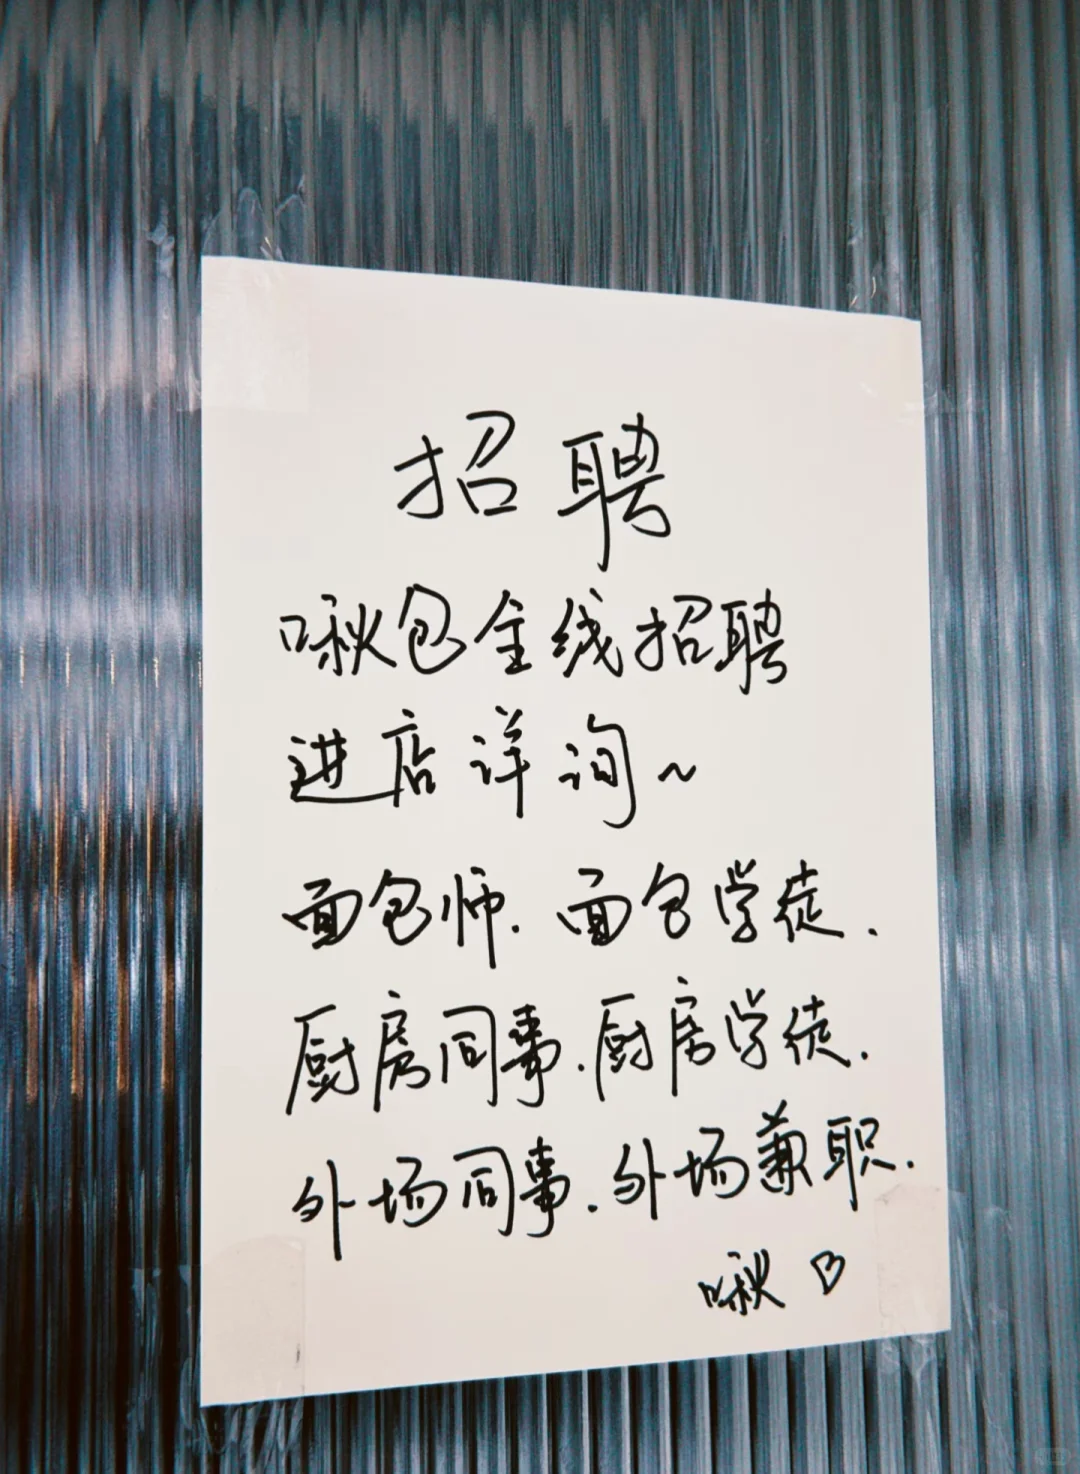 招聘
啾包全线招聘
进店详询~
面包师.面包学徒.
厨房同事.厨房学徒.
外场同事.外场兼职.
啾♡